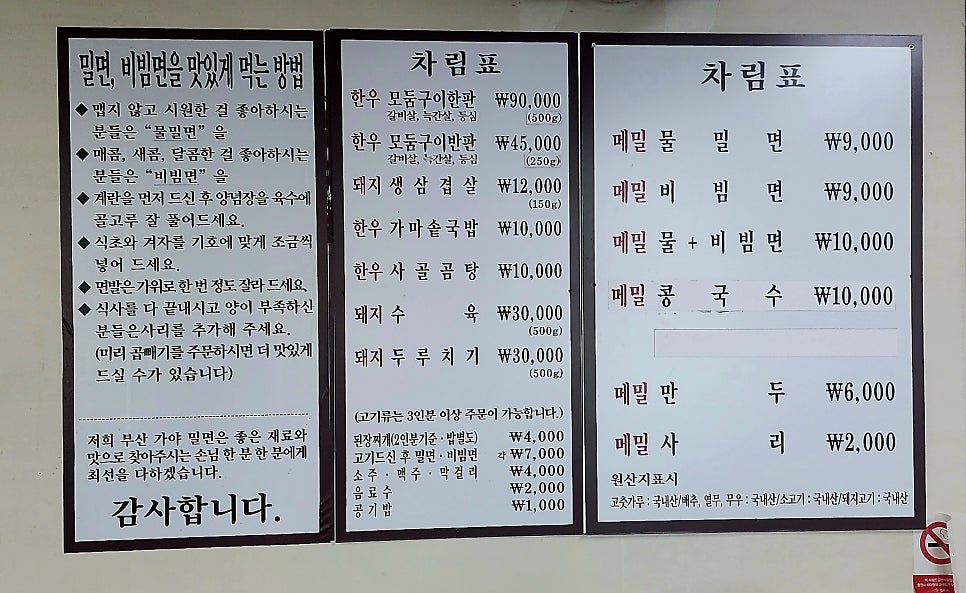 밀면, 비빔면을 맛있게 먹는 방법
◆ 맵지 않고 시원한 걸 좋아하시는
분들은 “물밀면” 을
◆ 매콤, 새콤, 달콤한 걸 좋아하시는
분들은 “비빔면” 을
◆ 계란을 먼저 드신 후 양념장을 육수에
골고루 잘 풀어드세요.
◆ 식초와 겨자를 기호에 맞게 조금씩
넣어 드세요.
◆ 면발은가위로 한 번 정도 잘라 드세요.
◆ 식사를 다 끝내시고 양이 부족하신
분들은사리를 추가해 주세요.
(미리 곱빼기를 주문하시면 더 맛있게
드실 수가 있습니다)
저희 부산 가야 밀면은 좋은 재료와
맛으로 찾아주시는 손님 한 분 한 분에게
최선을 다하겠습니다.
감사합니다.
차림표
한우 모둠구이한판 ₩90,000
갈비살, 늑간살, 등심 (500g)
한우 모둠구이반판 ₩45,000
갈비살, 늑간살, 등심 (250g)
돼지 생삼겹살 ₩12,000
(150g)
한우 가마솥국밥 ₩10,000
한우 사골곰탕 ₩10,000
돼지 수육 ₩30,000
(500g)
돼지 두루치기 ₩30,000
(500g)
(고기류는 3인분 이상 주문이 가능합니다.)
된장찌개(2인분기준·밥별도) ₩4,000
고기드신 후 밀면·비빔면 각 ₩7,000
소주·맥주·막걸리 ₩4,000
음료수 ₩2,000
공기밥 ₩1,000
차림표
메밀 물밀면 ₩9,000
메밀 비빔면 ₩9,000
메밀 물+비빔면 ₩10,000
메밀 콩국수 ₩10,000
메밀 만두 ₩6,000
메밀 사리 ₩2,000
원산지표시
고춧가루 : 국내산/배추, 열무, 무우 : 국내산/소고기 : 국내산/돼지고기 : 국내산